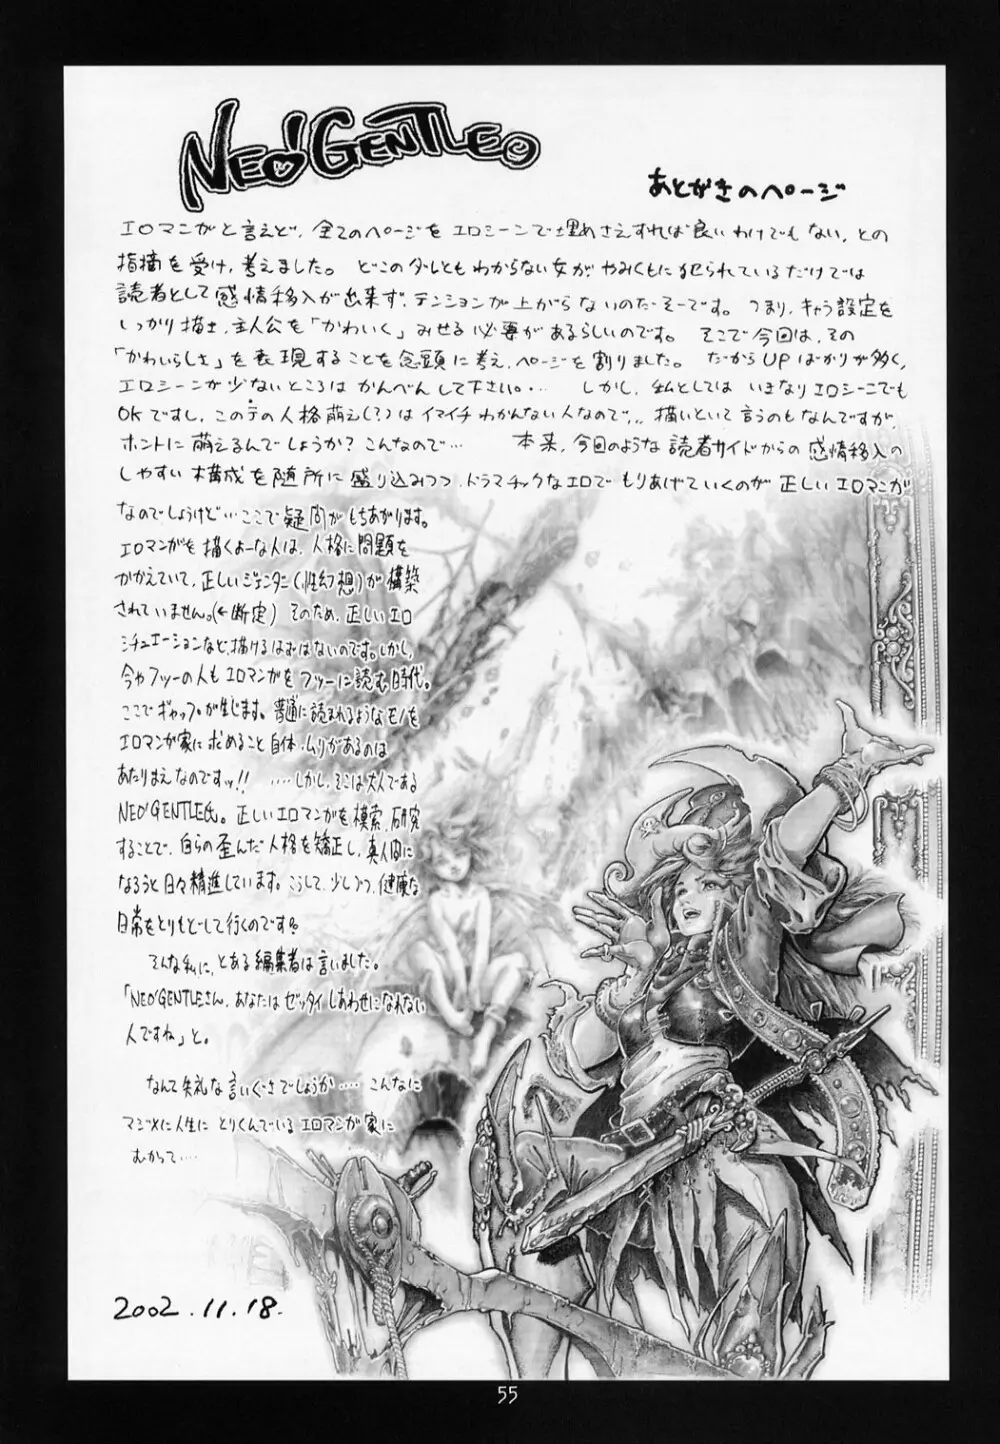 NEO'GENTLE
あとがきのページ
エロマンガと言えど、全てのページをエロシーンで埋めさえすれば良いわけでもない、との
指摘を受け、考えました。 どこのダレともわからない女が やみくもに犯られているだけでは
読者として感情移入が出来ず、テンションが上がらないのだそーです。 つまり、キャラ設定を
しっかり描き、主人公を「かわいく」みせる必要があるらしいのです。 そこで今回は、その
「かわいらしさ」を表現することを念頭に考え、ページを割りました。 だからUPばかりが多く、
エロシーンが少ないところはかんべんして下さい。… しかし、私としては いきなりエロシーンでも
OKですし、この手の人格萌え(?)はイマイチわかんない人なので… 描いといて言うのもなんですが、
ホントに萌えるんでしょうか? こんなので… 本来、今回のような読者サイドからの感情移入の
しやすい構成を随所に盛り込みつつ、ドラマチックなエロでもりあげていくのが正しいエロマンガ
なのでしょうけど…ここで疑問がもちあがります。
エロマンガを描くよーな人は、人格に問題を
かかえていて、正しいジェンダー(性幻想)が構築
されていません。(←断定) そのため、正しいエロ
シチュエーションなど、描けるはずはないのです。しかし、
今やフツーの人もエロマンガをフツーに読む時代。
ここでギャップが生じます。普通に読まれるようなモノを
エロマンガ家に求めること自体、ムリがあるのは
あたりまえなのですッ!! ‥‥しかし、そこは大人である
NEO'GENTLE氏。正しいエロマンガを模索、研究
することで、自らの歪んだ人格を矯正し、真人間に
なろうと日々精進しています。こうして、少しづつ、健康な
日常をとりもどして行くのです。
そんな私に、とある編集者は言いました。
「NEO'GENTLEさん、あなたはゼッタイしあわせになれない
人ですね」と。
なんて失礼な言いぐさでしょうか‥‥ こんなに
マジメに人生にとりくんでいるエロマンガ家に
むかって…
2002.11.18.
55